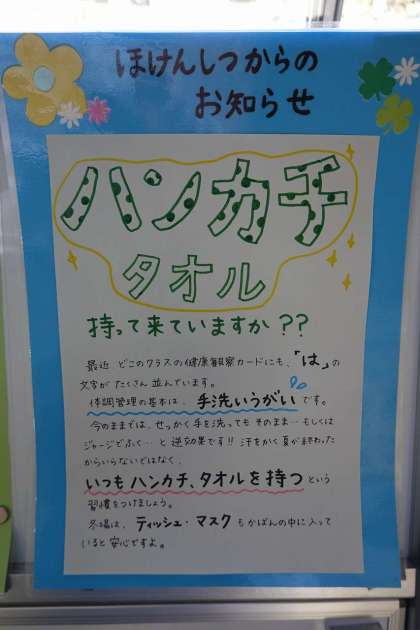 ほけんしつからの
お知らせ
ハンカチ
タオル
持って来ていますか??
最近 どこのクラスの健康観察カードにも、「は」の
文字が たくさん 並んでいます。
体調管理の基本は、手洗いうがいです。
今のままでは、せっかく手を洗っても そのまま…もしくは
ジャージでふく…と 逆効果です!! 汗をかく夏が終わった
からいらないではなく、
いつもハンカチ、タオルを持つという
習慣をつけましょう。
冬場は、ティッシュ・マスクもかばんの中に入って
いると安心ですよ。